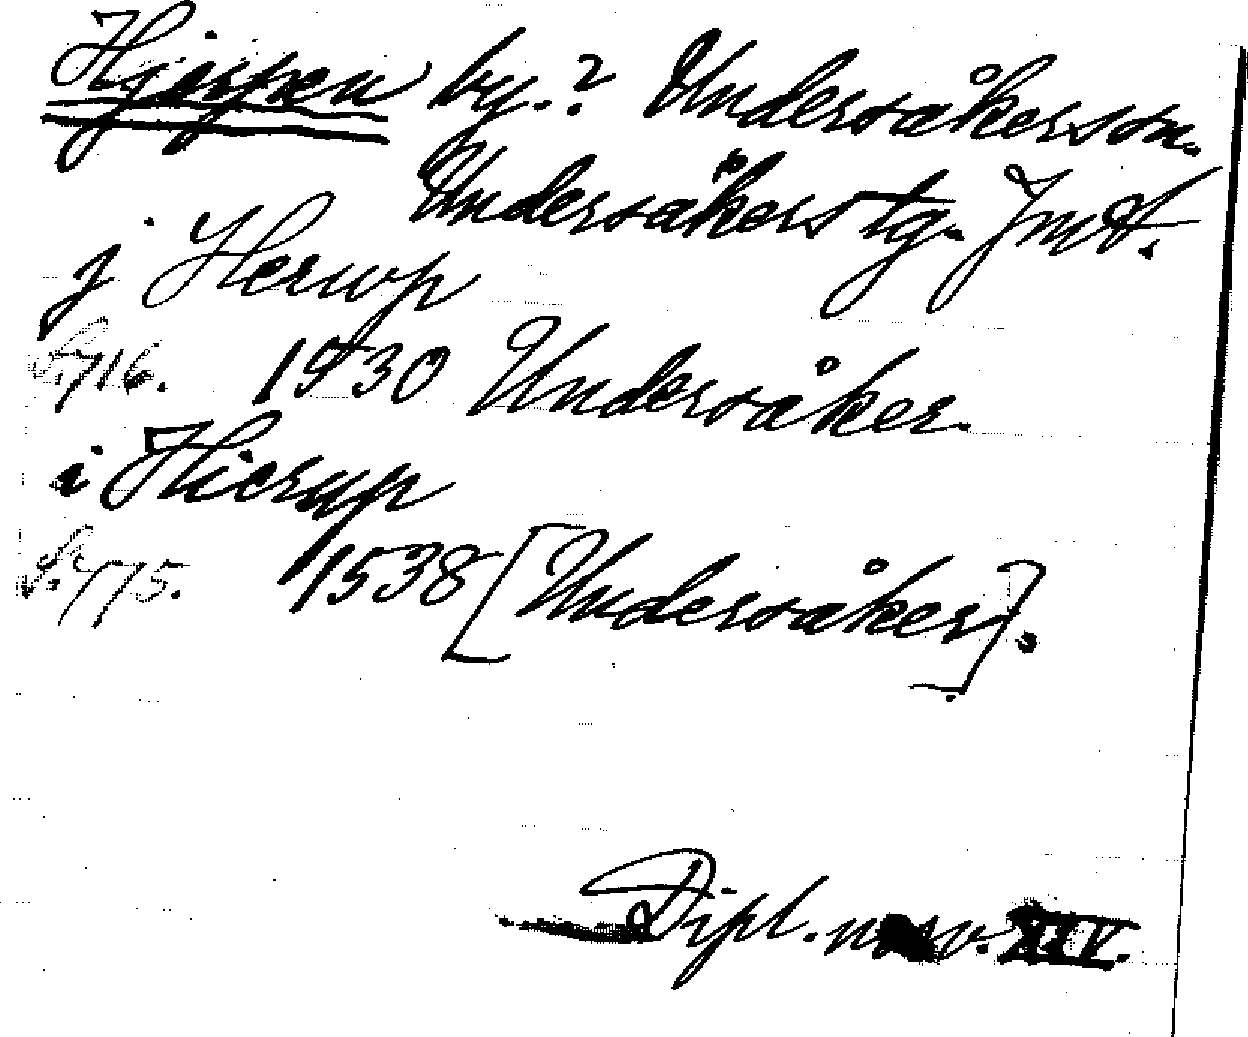 Hjerpen by.? Undersåkerssn.
Undersåkers tg. Jmtl.
j Herwp
S. 716. 1530 Undersåker.
i Hierpp
S. 775. 1538 [Undersåker].
Dipl. norv. XIV.